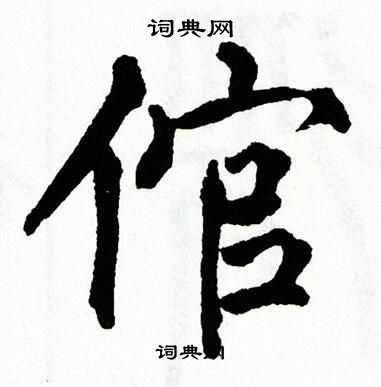 词典网
倌
词典网